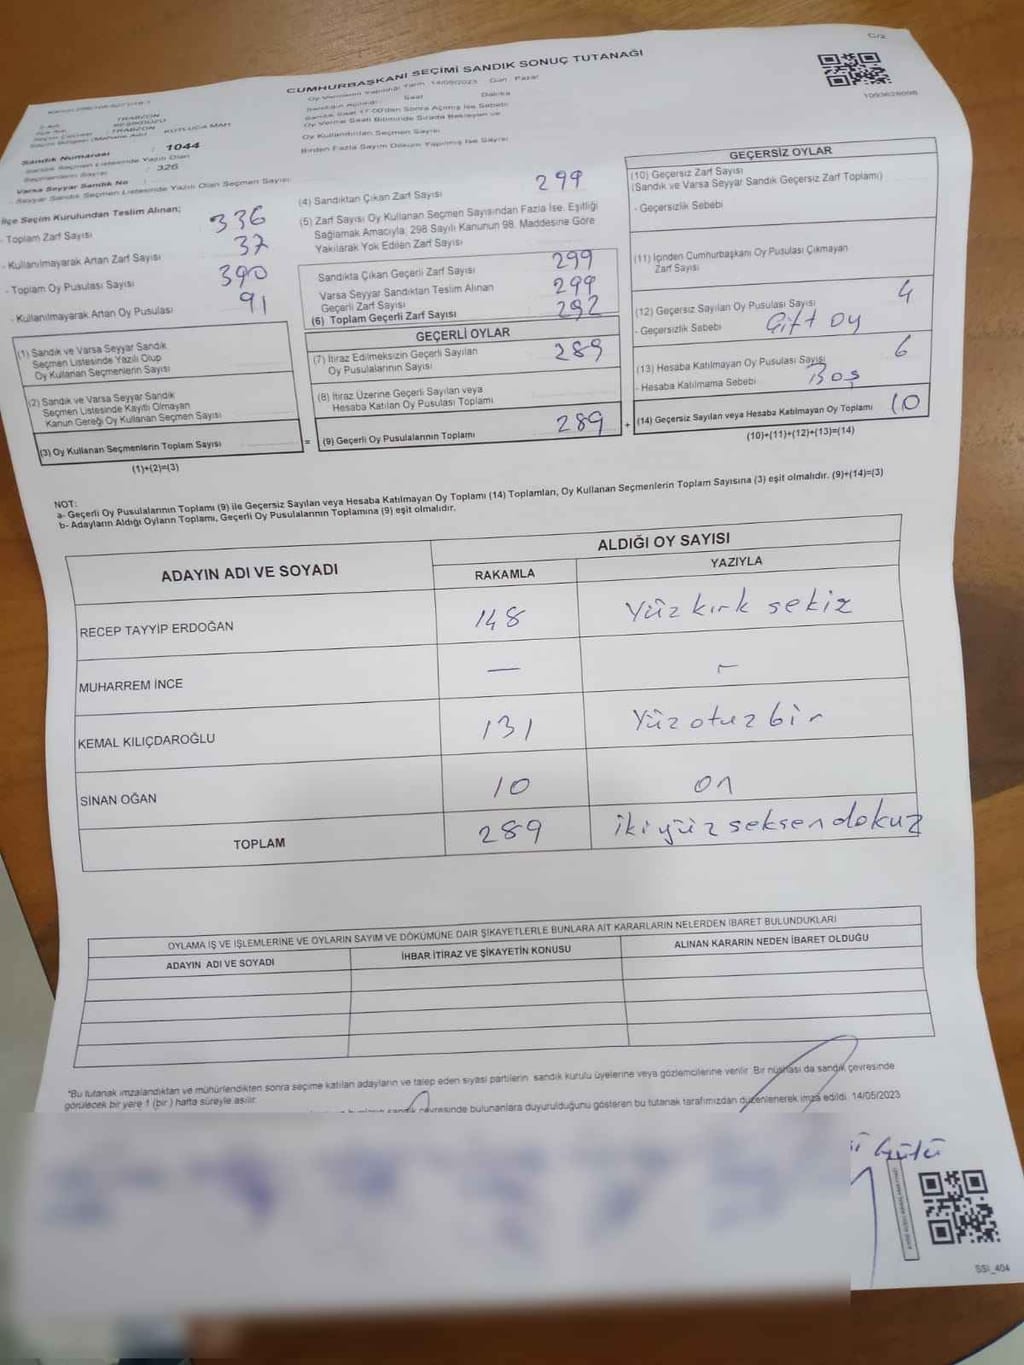 C/2
CUMHURBAŞKANI SEÇİMİ SANDIK SONUÇ TUTANAĞI
Oy Vermenin Yapıldığı Tarih: 14/05/2023 Gün: Pazar
Saat Dakika
Sandık Saat 17:00'den Sonra Açılmış İse Sebebi
Oy Kullandırılan Seçmen Sayısı
Birden Fazla Sayım Döküm Yapılmış İse Sayısı
TRABZON
TRABZON KUTLUCA MAH
Sandık Numarası : 1044
Sandık Seçmen Listesinde Yazılı Olan
Seçmenlerin Sayısı : 326
Varsa Seyyar Sandık No :
Seyyar Sandık Seçmen Listesinde Yazılı Olan Seçmen Sayısı:
İlçe Seçim Kurulundan Teslim Alınan;
- Toplam Zarf Sayısı 336
- Kullanılmayarak Artan Zarf Sayısı 37
- Toplam Oy Pusulası Sayısı 390
- Kullanılmayarak Artan Oy Pusulası 91
(1) Sandık ve Varsa Seyyar Sandık
Seçmen Listesinde Yazılı Olup
Oy Kullanan Seçmenlerin Sayısı
(2) Sandık ve Varsa Seyyar Sandık
Seçmen Listesinde Kayıtlı Olmayan
Kanun Gereği Oy Kullanan Seçmen Sayısı
(3) Oy Kullanan Seçmenlerin Toplam Sayısı =
(1)+(2)=(3)
(4) Sandıktan Çıkan Zarf Sayısı 299
(5) Zarf Sayısı Oy Kullanan Seçmen Sayısından Fazla İse, Eşitliği
Sağlamak Amacıyla; 298 Sayılı Kanunun 98. Maddesine Göre
Yakılarak Yok Edilen Zarf Sayısı
Sandıkta Çıkan Geçerli Zarf Sayısı 299
Varsa Seyyar Sandıktan Teslim Alınan
Geçerli Zarf Sayısı 299
(6) Toplam Geçerli Zarf Sayısı 292
GEÇERLİ OYLAR
(7) İtiraz Edilmeksizin Geçerli Sayılan
Oy Pusulalarının Sayısı 289
(8) İtiraz Üzerine Geçerli Sayılan veya
Hesaba Katılan Oy Pusulası Toplamı
(9) Geçerli Oy Pusulalarının Toplamı 289 +
GEÇERSİZ OYLAR
(10) Geçersiz Zarf Sayısı
(Sandık ve Varsa Seyyar Sandık Geçersiz Zarf Toplamı)
- Geçersizlik Sebebi
(11) İçinden Cumhurbaşkanı Oy Pusulası Çıkmayan
Zarf Sayısı
(12) Geçersiz Sayılan Oy Pusulası Sayısı 4
- Geçersizlik Sebebi Çift Oy
(13) Hesaba Katılmayan Oy Pusulası Sayısı 6
- Hesaba Katılmama Sebebi Boş
(14) Geçersiz Sayılan veya Hesaba Katılmayan Oy Toplamı 10
(10)+(11)+(12)+(13)=(14)
NOT:
a- Geçerli Oy Pusulalarının Toplamı (9) ile Geçersiz Sayılan veya Hesaba Katılmayan Oy Toplamı (14) Toplamları, Oy Kullanan Seçmenlerin Toplam Sayısına (3) eşit olmalıdır. (9)+(14)=(3)
b- Adayların Aldığı Oyların Toplamı, Geçerli Oy Pusulalarının Toplamına (9) eşit olmalıdır.
ADAYIN ADI VE SOYADI ALDIĞI OY SAYISI
RAKAMLA YAZIYLA
RECEP TAYYİP ERDOĞAN 148 Yüz kırk sekiz
MUHARREM İNCE — —
KEMAL KILIÇDAROĞLU 131 Yüz otuz bir
SİNAN OĞAN 10 on
TOPLAM 289 iki yüz seksen dokuz
OYLAMA İŞ VE İŞLEMLERİNE VE OYLARIN SAYIM VE DÖKÜMÜNE DAİR ŞİKAYETLERLE BUNLARA AİT KARARLARIN NELERDEN İBARET BULUNDUKLARI
ADAYIN ADI VE SOYADI İHBAR İTİRAZ VE ŞİKAYETİN KONUSU ALINAN KARARIN NEDEN İBARET OLDUĞU
*Bu tutanak imzalandıktan ve mühürlendikten sonra seçime katılan adayların ve talep eden siyasi partilerin sandık kurulu üyelerine veya gözlemcilerine verilir. Bir nüshası da sandık çevresinde
görülecek bir yere 1 (bir) hafta süreyle asılır.
sandık çevresinde bulunanlara duyurulduğunu gösteren bu tutanak tarafımızdan düzenlenerek imza edildi. 14/05/2023
SSI_404